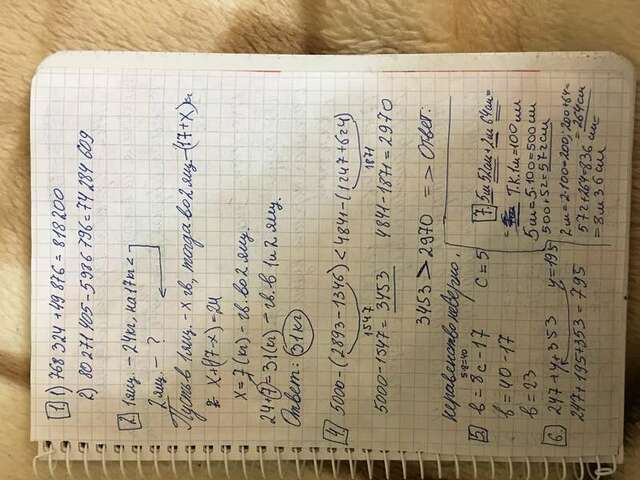 1. 1) 768 324 + 49 876 = 818 200
2) 80 271 405 - 5986 796 = 74 284 609
2. 1 ящ. - 24 кг, на 17 кг <
2 ящ. - ?
Пусть в 1 ящ. - x гв, тогда во 2 ящ - (17 + x) кг
x + (17 - x) = 24
x = 7 (кг) - гв. во 2 ящ.
24 + 7 = 31 (кг) - гв. в 1 и 2 ящ.
Ответ: 31 кг
4 5000 - (2893 - 1346) < 4841 - (1247 + 624)
1547 1871
5000 - 1547 = 3453 4841 - 1871 = 2970
3453 > 2970 => Ответ:
неравенство неверно.
5. в = 8с - 17 с = 5
5·8=40
в = 40 - 17
в = 23
6. 247 + y + 353 y = 195
247 + 195 + 353 = 795
7. 5м 52см + 2м 64см =
= Т.К. 1м = 100см
5м = 5·100 = 500см
500 + 52 = 572см
2м = 2·100 = 200; 200 + 64 =
= 264см
572 + 264 = 836 см =
= 8м 36см